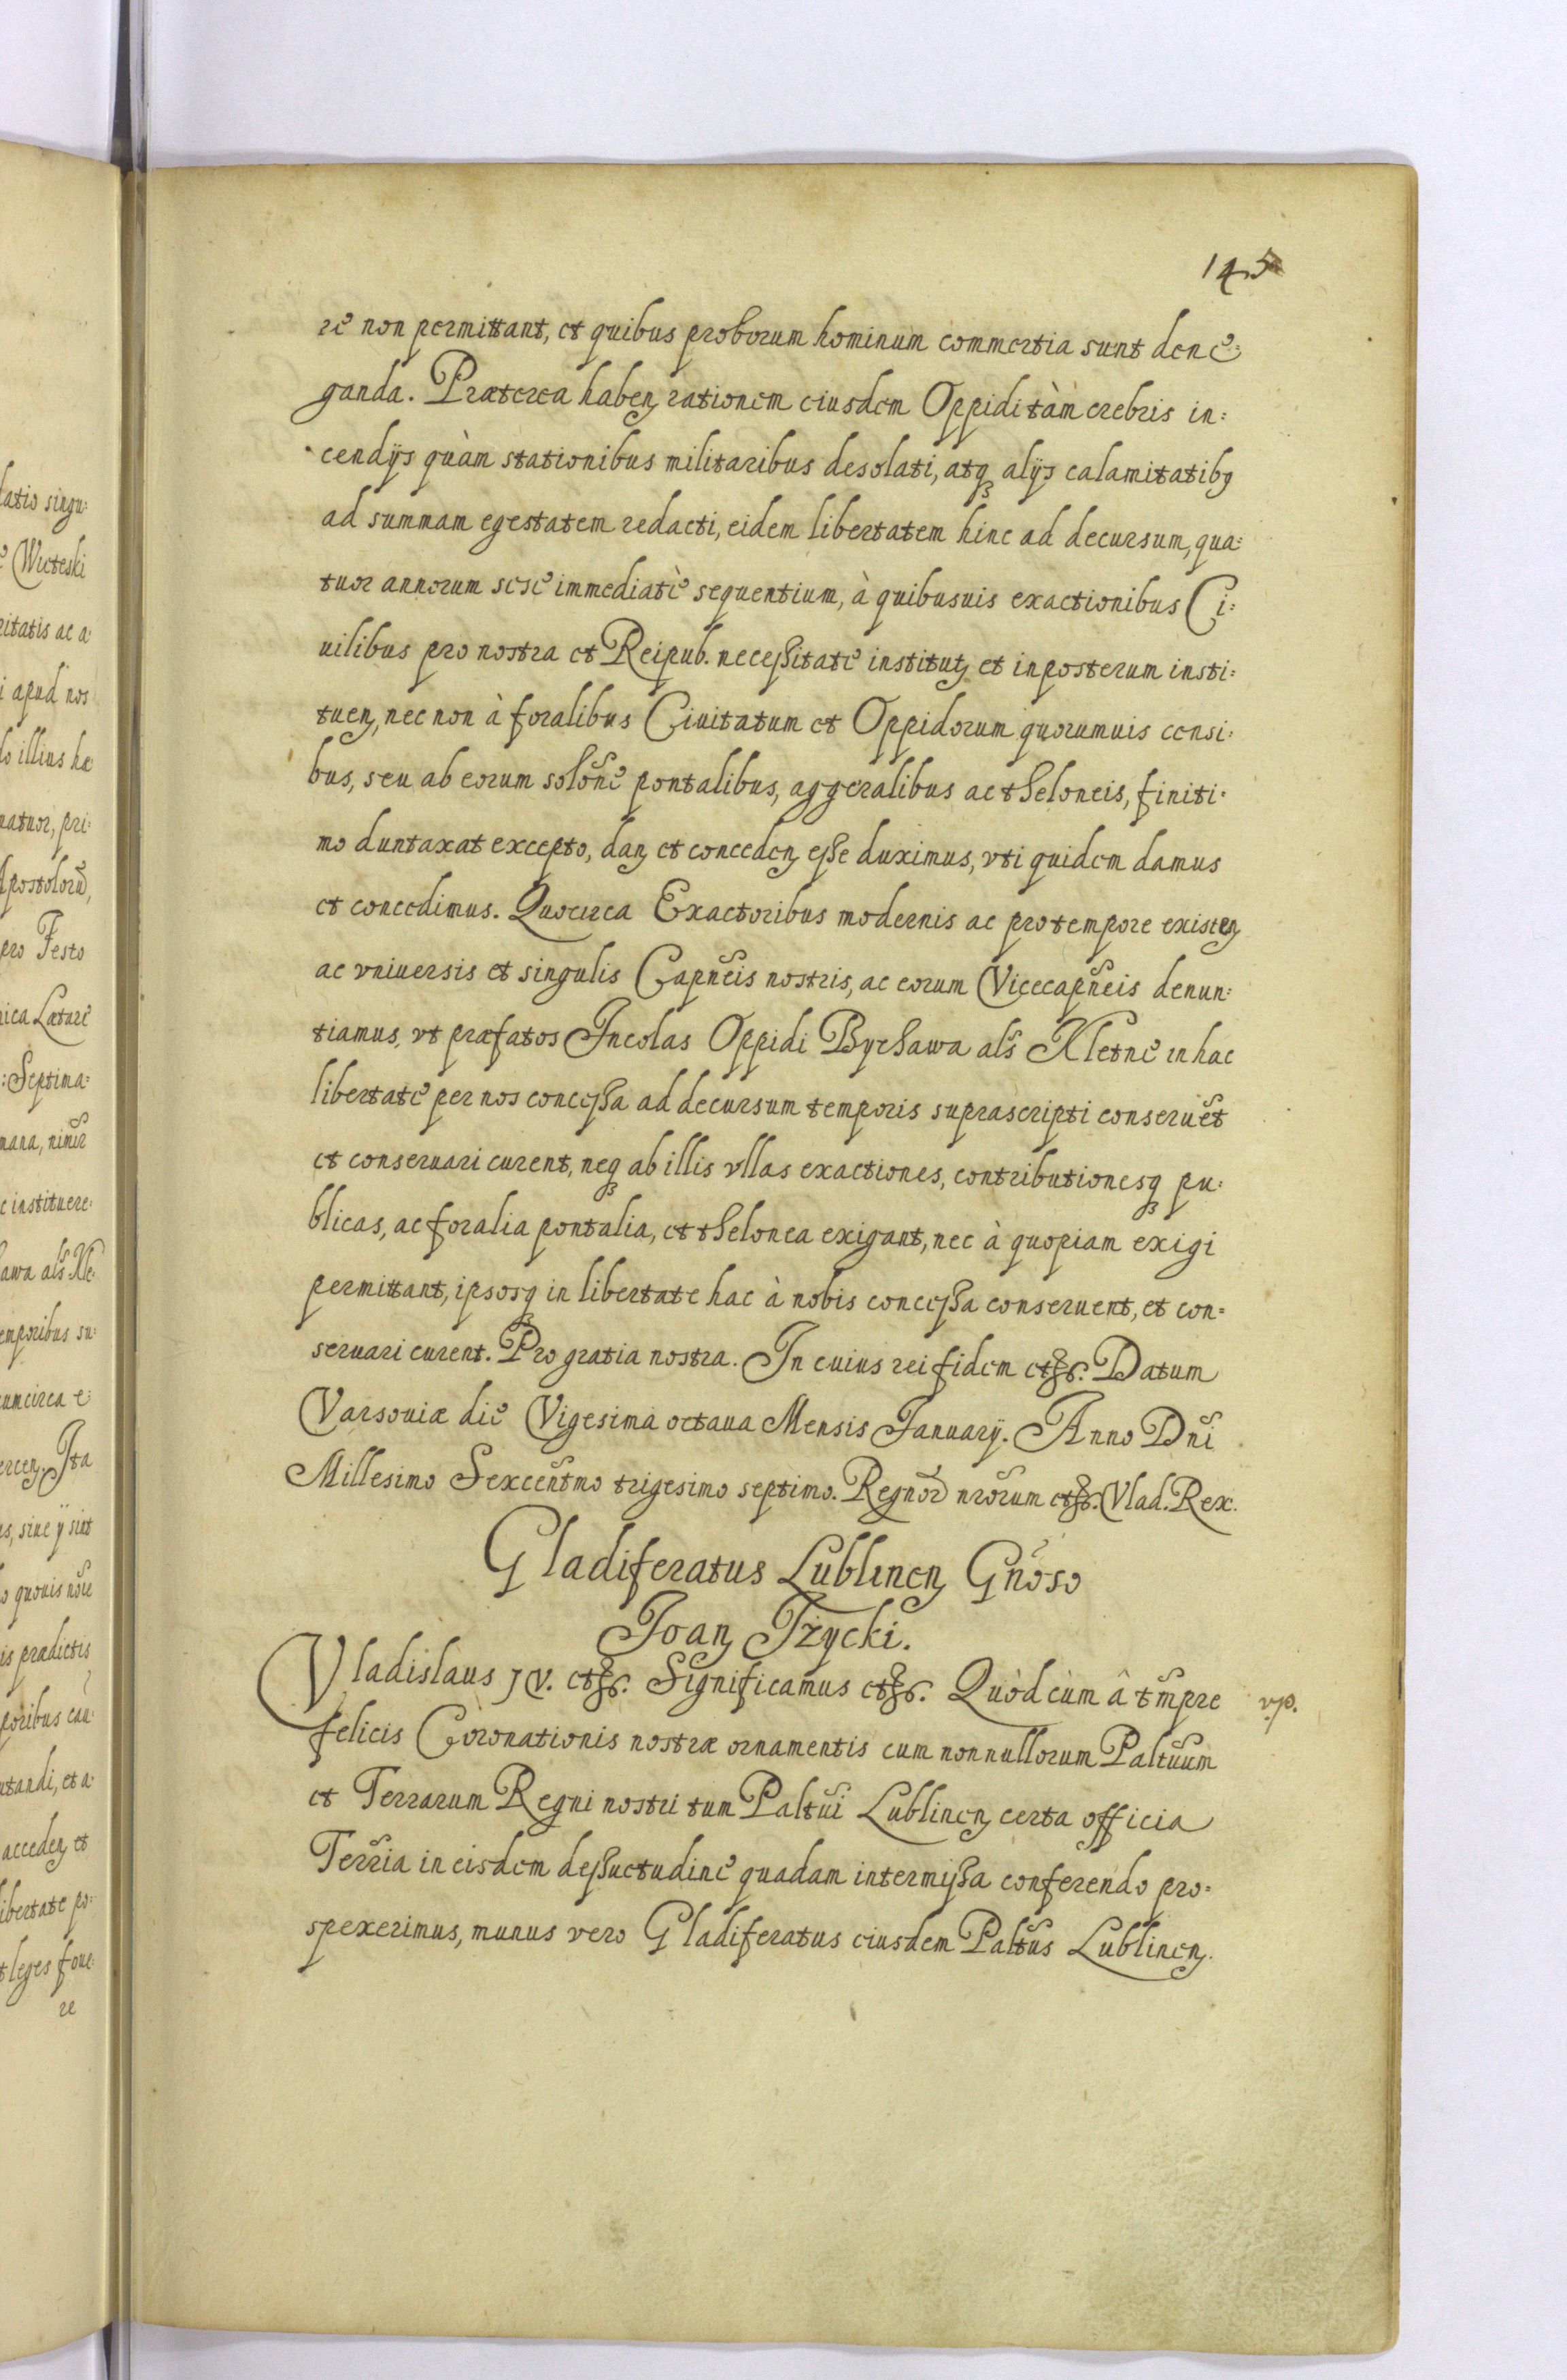 145
re non permittant, et quibus proborum hominum commertia sunt dene:
ganda. Præterea haben̨ rationem eiusdem Oppidi tàm crebris in:
cendijs quàm stationibus militaribus desolati, atq₃ alijs calamitatibꝯ
ad summam egestatem redacti, eidem libertatem hinc ad decursum, qua:
tuor annorum sese immediatè sequentium, à quibusuis exactionibus Ci:
uilibus pro nostra et Reipub. necessitate institut̨ et inposterum insti:
tuen̨, nec non à foralibus Ciuitatum et Oppidorum quorumuis censi:
bus, seu ab eorum solõne pontalibus, aggeralibus ac theloneis, finiti:
mo duntaxat excepto, dan̨ et conceden̨ esse duximus, vti quidem damus
et concedimus. Quocirca Exactoribus modernis ac protempore existen̨
ac vniuersis et singulis Capñeis nostris, ac eorum Vicecapñeis denun:
tiamus, vt præfatos Incolas Oppidi Bychawa als̃ Kletne in hac
libertate per nos concessa ad decursum temporis suprascripti conseruẽt
et conseruari curent, neq₃ ab illis vllas exactiones, contributionesq₃ pu:
blicas, ac foralia pontalia, et thelonea exigant, nec à quopiam exigi
permittant, ipsosq₃ in libertate hac à nobis concessa conseruent, et con=
seruari curent. Pro gratia nostra. In cuius rei fidem etc. Datum
Varsouiæ die Vigesima octaua Mensis Januarij. Anno Dñi
Millesimo Sexcentm̃o trigesimo septimo. Regnor̃ nr̃orum etc. Vlad. Rex.
Gladiferatus Lublinen̨ Gñoso
Joan̨ Trzycki.
Vladislaus IV. etc. Significamus etc. Quòd cùm â tm̃pre vp.
felicis Coronationis nostræ ornamentis cum nonnullorum Paltũum
et Terrarum Regni nostri tum Paltũi Lublinen̨ certa officia
Terr̃ia in eisdem dessuetudine quadam intermissa conferendo pro:
spexerimus, munus vero Gladiferatus eiusdem Paltũs Lublinen̨.